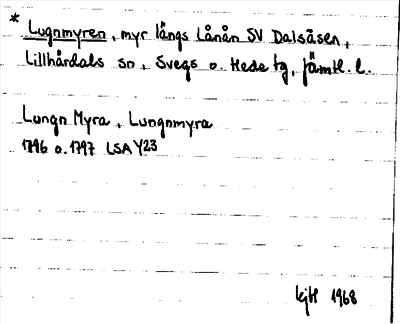 * Lugnmyren, myr längs Lånån SV Dalsåsen,
Lillhärdals sn, Svegs o. Hede tg, Jämtl. l.
Lungn Myra, Lungnmyra
1796 o. 1797 LSA Y23
1968